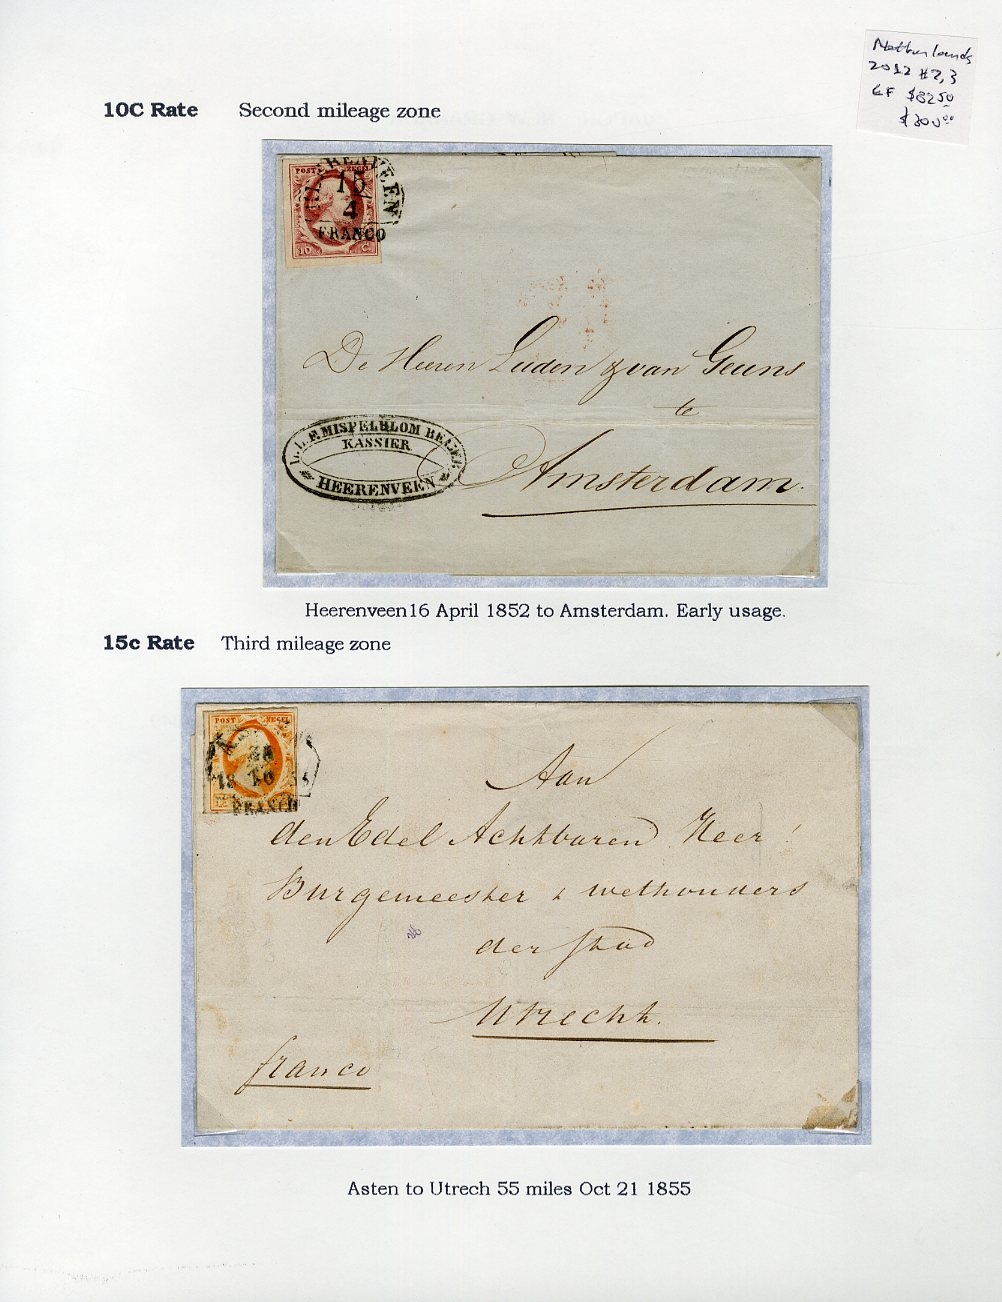 Netherlands
2012 #2,3
EF $8250
$30000
10C Rate Second mileage zone
POST ZEGEL
HEERENVEEN
15
4
FRANCO
10 C
De Heeren Luden & van Geuns
te
Amsterdam.
MISPELBLOM BEIJER
KASSIER
HEERENVEEN
Heerenveen16 April 1852 to Amsterdam. Early usage.
15c Rate Third mileage zone
POST ZEGEL
18 10
FRANCO
Aan
den Edel Achtbaren Heer
Burgemeester & wethouders
der Stad
Utrecht.
franco
Asten to Utrech 55 miles Oct 21 1855